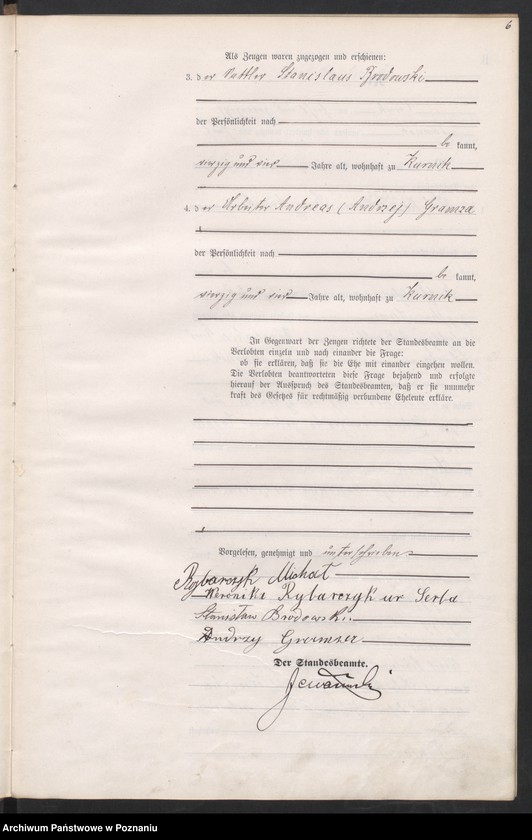 6
Als Zeugen waren zugezogen und erschienen:
3. der Sattler Stanislaus Brodowski
der Persönlichkeit nach
be kannt,
vierzig und vier Jahre alt, wohnhaft zu Kurnik
4. der Arbeiter Andreas (Andrzej) Gramza
der Persönlichkeit nach
be kannt,
vierzig und vier Jahre alt, wohnhaft zu Kurnik
In Gegenwart der Zeugen richtete der Standesbeamte an die
Verlobten einzeln und nach einander die Frage:
ob sie erklären, daß sie die Ehe mit einander eingehen wollen.
Die Verlobten beantworteten diese Frage bejahend und erfolgte
hierauf der Ausspruch des Standesbeamten, daß er sie nunmehr
kraft des Gesetzes für rechtmäßig verbundene Eheleute erkläre.
Vorgelesen, genehmigt und unterschrieben
Rybarczyk Michał
Weronika Rybarczyk ur Serba
Stanisław Brodowski
Andrzy Gramza
Der Standesbeamte.
Archiwum Państwowe w Poznaniu